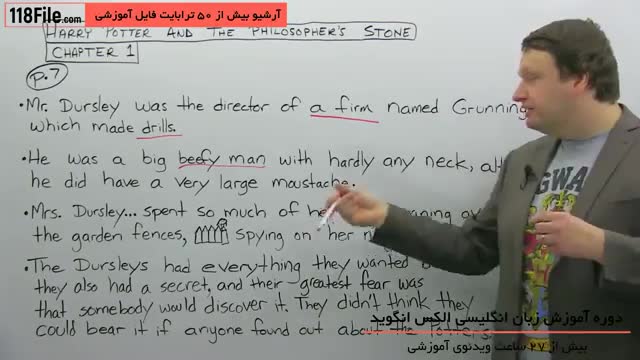 118File.com
آرشیو بیش از ۵۰ ترابایت فایل آموزشی
HARRY POTTER AND THE PHILOSOPHER'S STONE
CHAPTER 1
p.7
• Mr. Dursley was the director of a firm named Grunning
which made drills.
• He was a big beefy man with hardly any neck,
he did have a very large moustache.
• Mrs. Dursley... spent so much of
the garden fences, spying on her
• The Dursleys had everything they wanted
they also had a secret, and their greatest fear was
that somebody would discover it. They didn't think they
could bear it if anyone found out about the Potters.
GWA
دوره آموزش زبان انگلیسی الکس انگوید
بیش از ۲۷ ساعت ویدئوی آموزشی